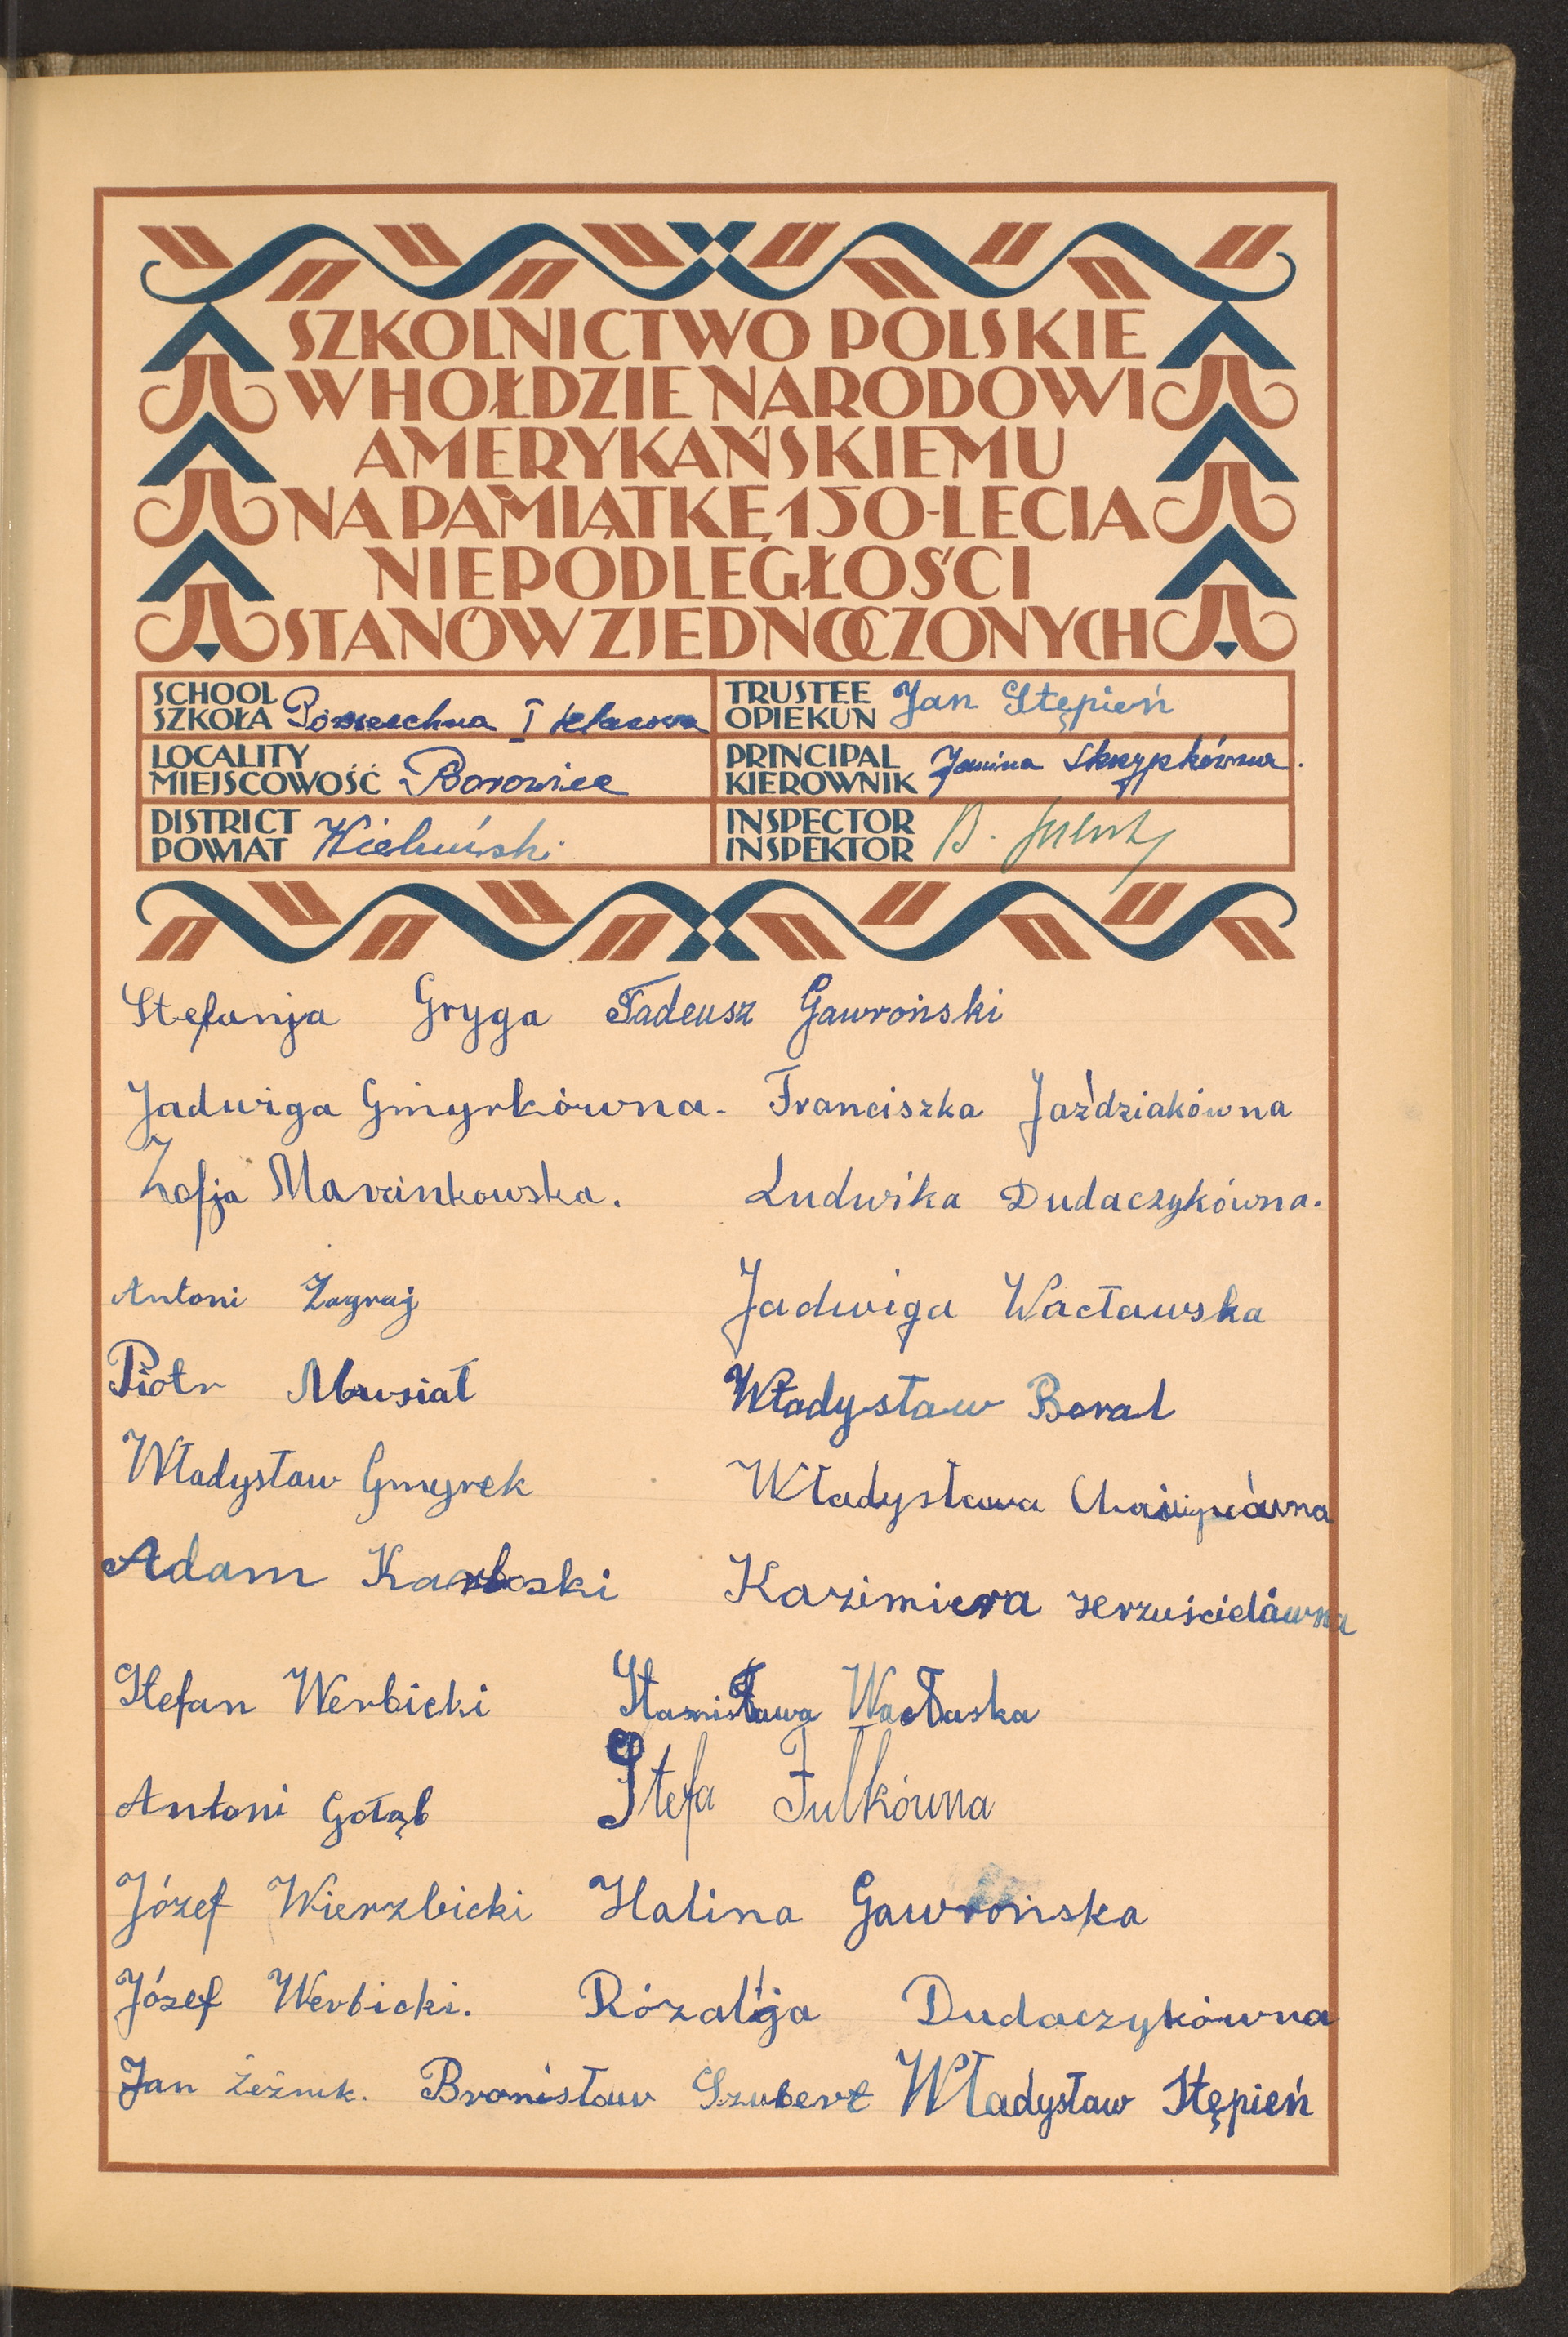 SZKOLNICTWO POLSKIE
W HOŁDZIE NARODOWI
AMERYKAŃSKIEMU
NA PAMIĄTKĘ 150-LECIA
NIEPODLEGŁOŚCI
STANÓW ZJEDNOCZONYCH
SCHOOL
SZKOŁA Powszechna I klasowa
TRUSTEE
OPIEKUN Jan Stępień
LOCALITY
MIEJSCOWOŚĆ Borowiec
PRINCIPAL
KIEROWNIK Janina Skrzypkówna.
DISTRICT
POWIAT Wieluński
INSPECTOR
INSPEKTOR B.
Stefanja Gryga Tadeusz Gawroński
Jadwiga Gmyrkówna. Franciszka Jaździakówna
Zofja Marcinkowska. Ludwika Dudaczykówna.
Antoni Zagraj Jadwiga Wacławska
Piotr Musiał Władysław Boral
Władysław Gmyrek Władysława
Adam Karboski Kazimiera
Stefan Werbicki Stanisława Wacłaska
Antoni Gołąb Stefa Fulkówna
Józef Wierzbicki Halina Gawrońska
Józef Werbicki. Rózalja Dudaczykówna
Jan Żeźnik. Bronisław Szubert Władysław Stępień